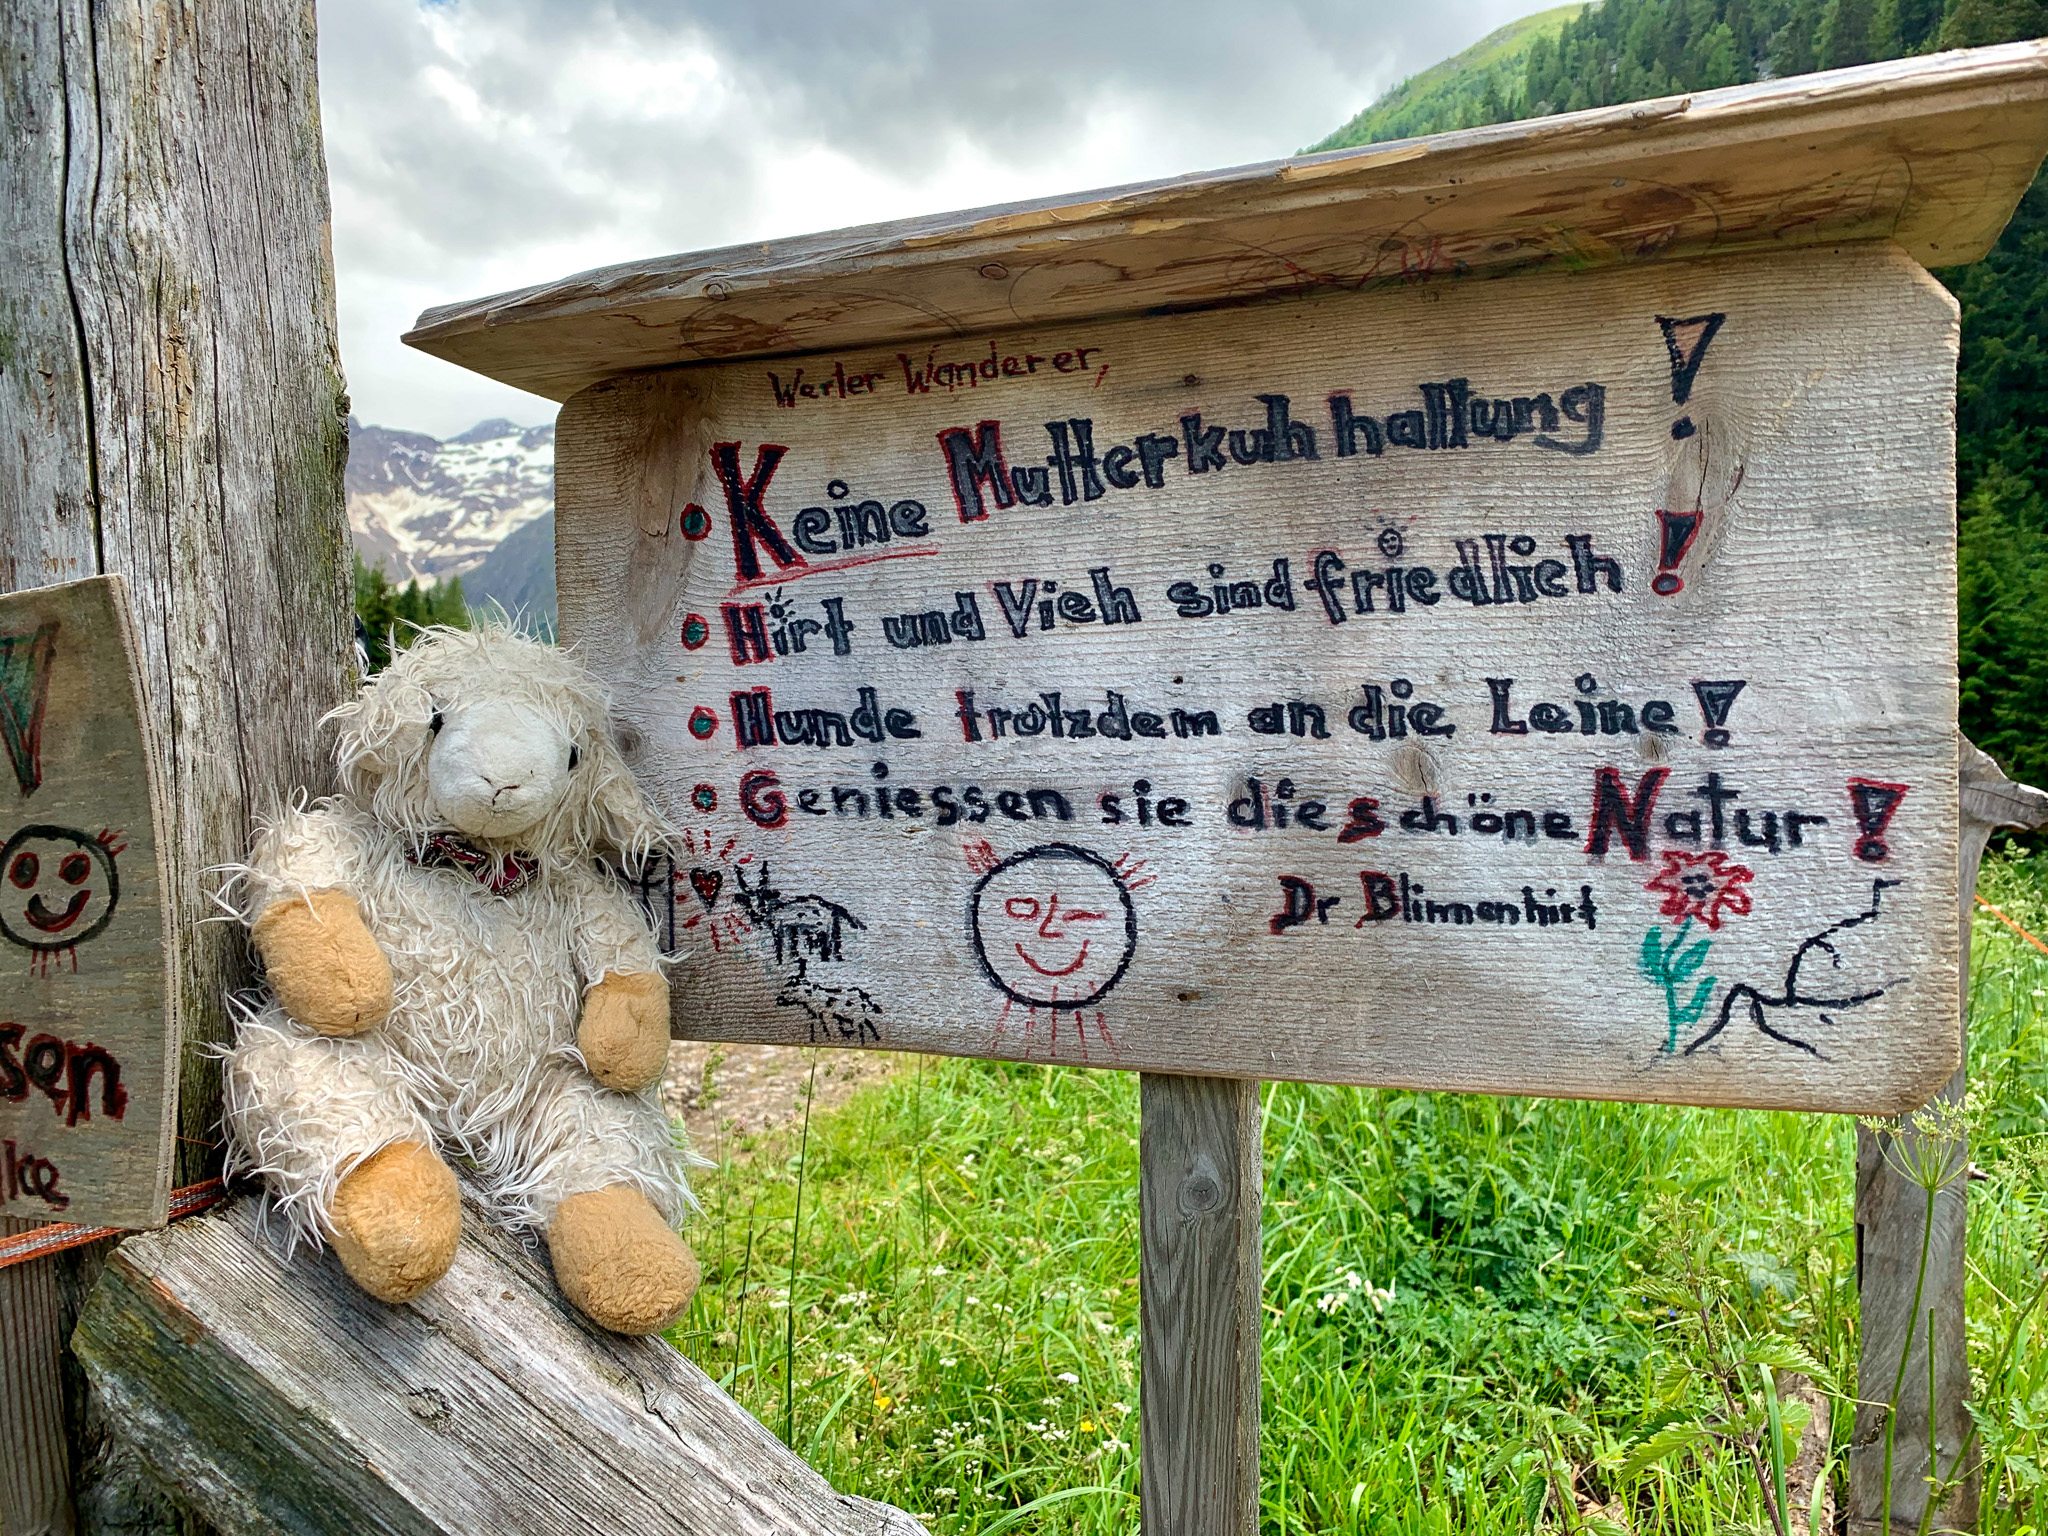 Werter Wanderer,
Keine Mutterkuhhaltung!
Hirt und Vieh sind friedlich!
Hunde trotzdem an die Leine!
Geniessen sie die schöne Natur!
Dr Blinnenhirt
sen
lke